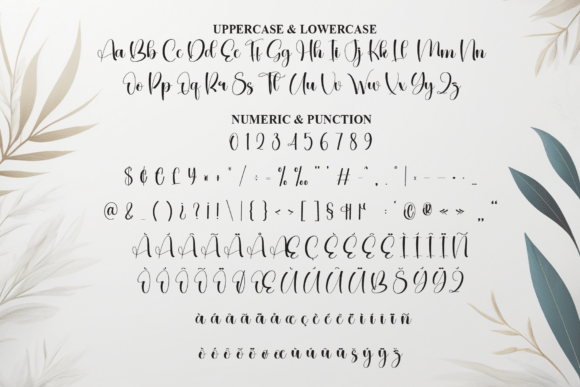 UPPERCASE & LOWERCASE
Aa Bb Cc Dd Ee Ff Gg Hh Ii Jj Kk Ll Mm Nn
Oo Pp Qq Rr Ss Tt Uu Vv Ww Vx Yy Zz
NUMERIC & PUNCTION
0 1 2 3 4 5 6 7 8 9
$ ¢ € £ ¥ / ÷ = % ‰ " ' # | _
@ & _ ( ) ¿ ? ¡ ! \ | { } < > [ ] § ¶ © ® « » „ “
À Á Â Ã Ä Å Æ Ç È É Ê Ë Ì Í Î Ï Ñ
Ò Ó Ô Õ Ö Ø Œ Ù Ú Û Ü ß Š Ý Ÿ Ž
à á â ã ä å æ ç è é ê ë ì í î ï ñ
ò ó ô õ ö ø œ ù ú û ü š ý ÿ ž